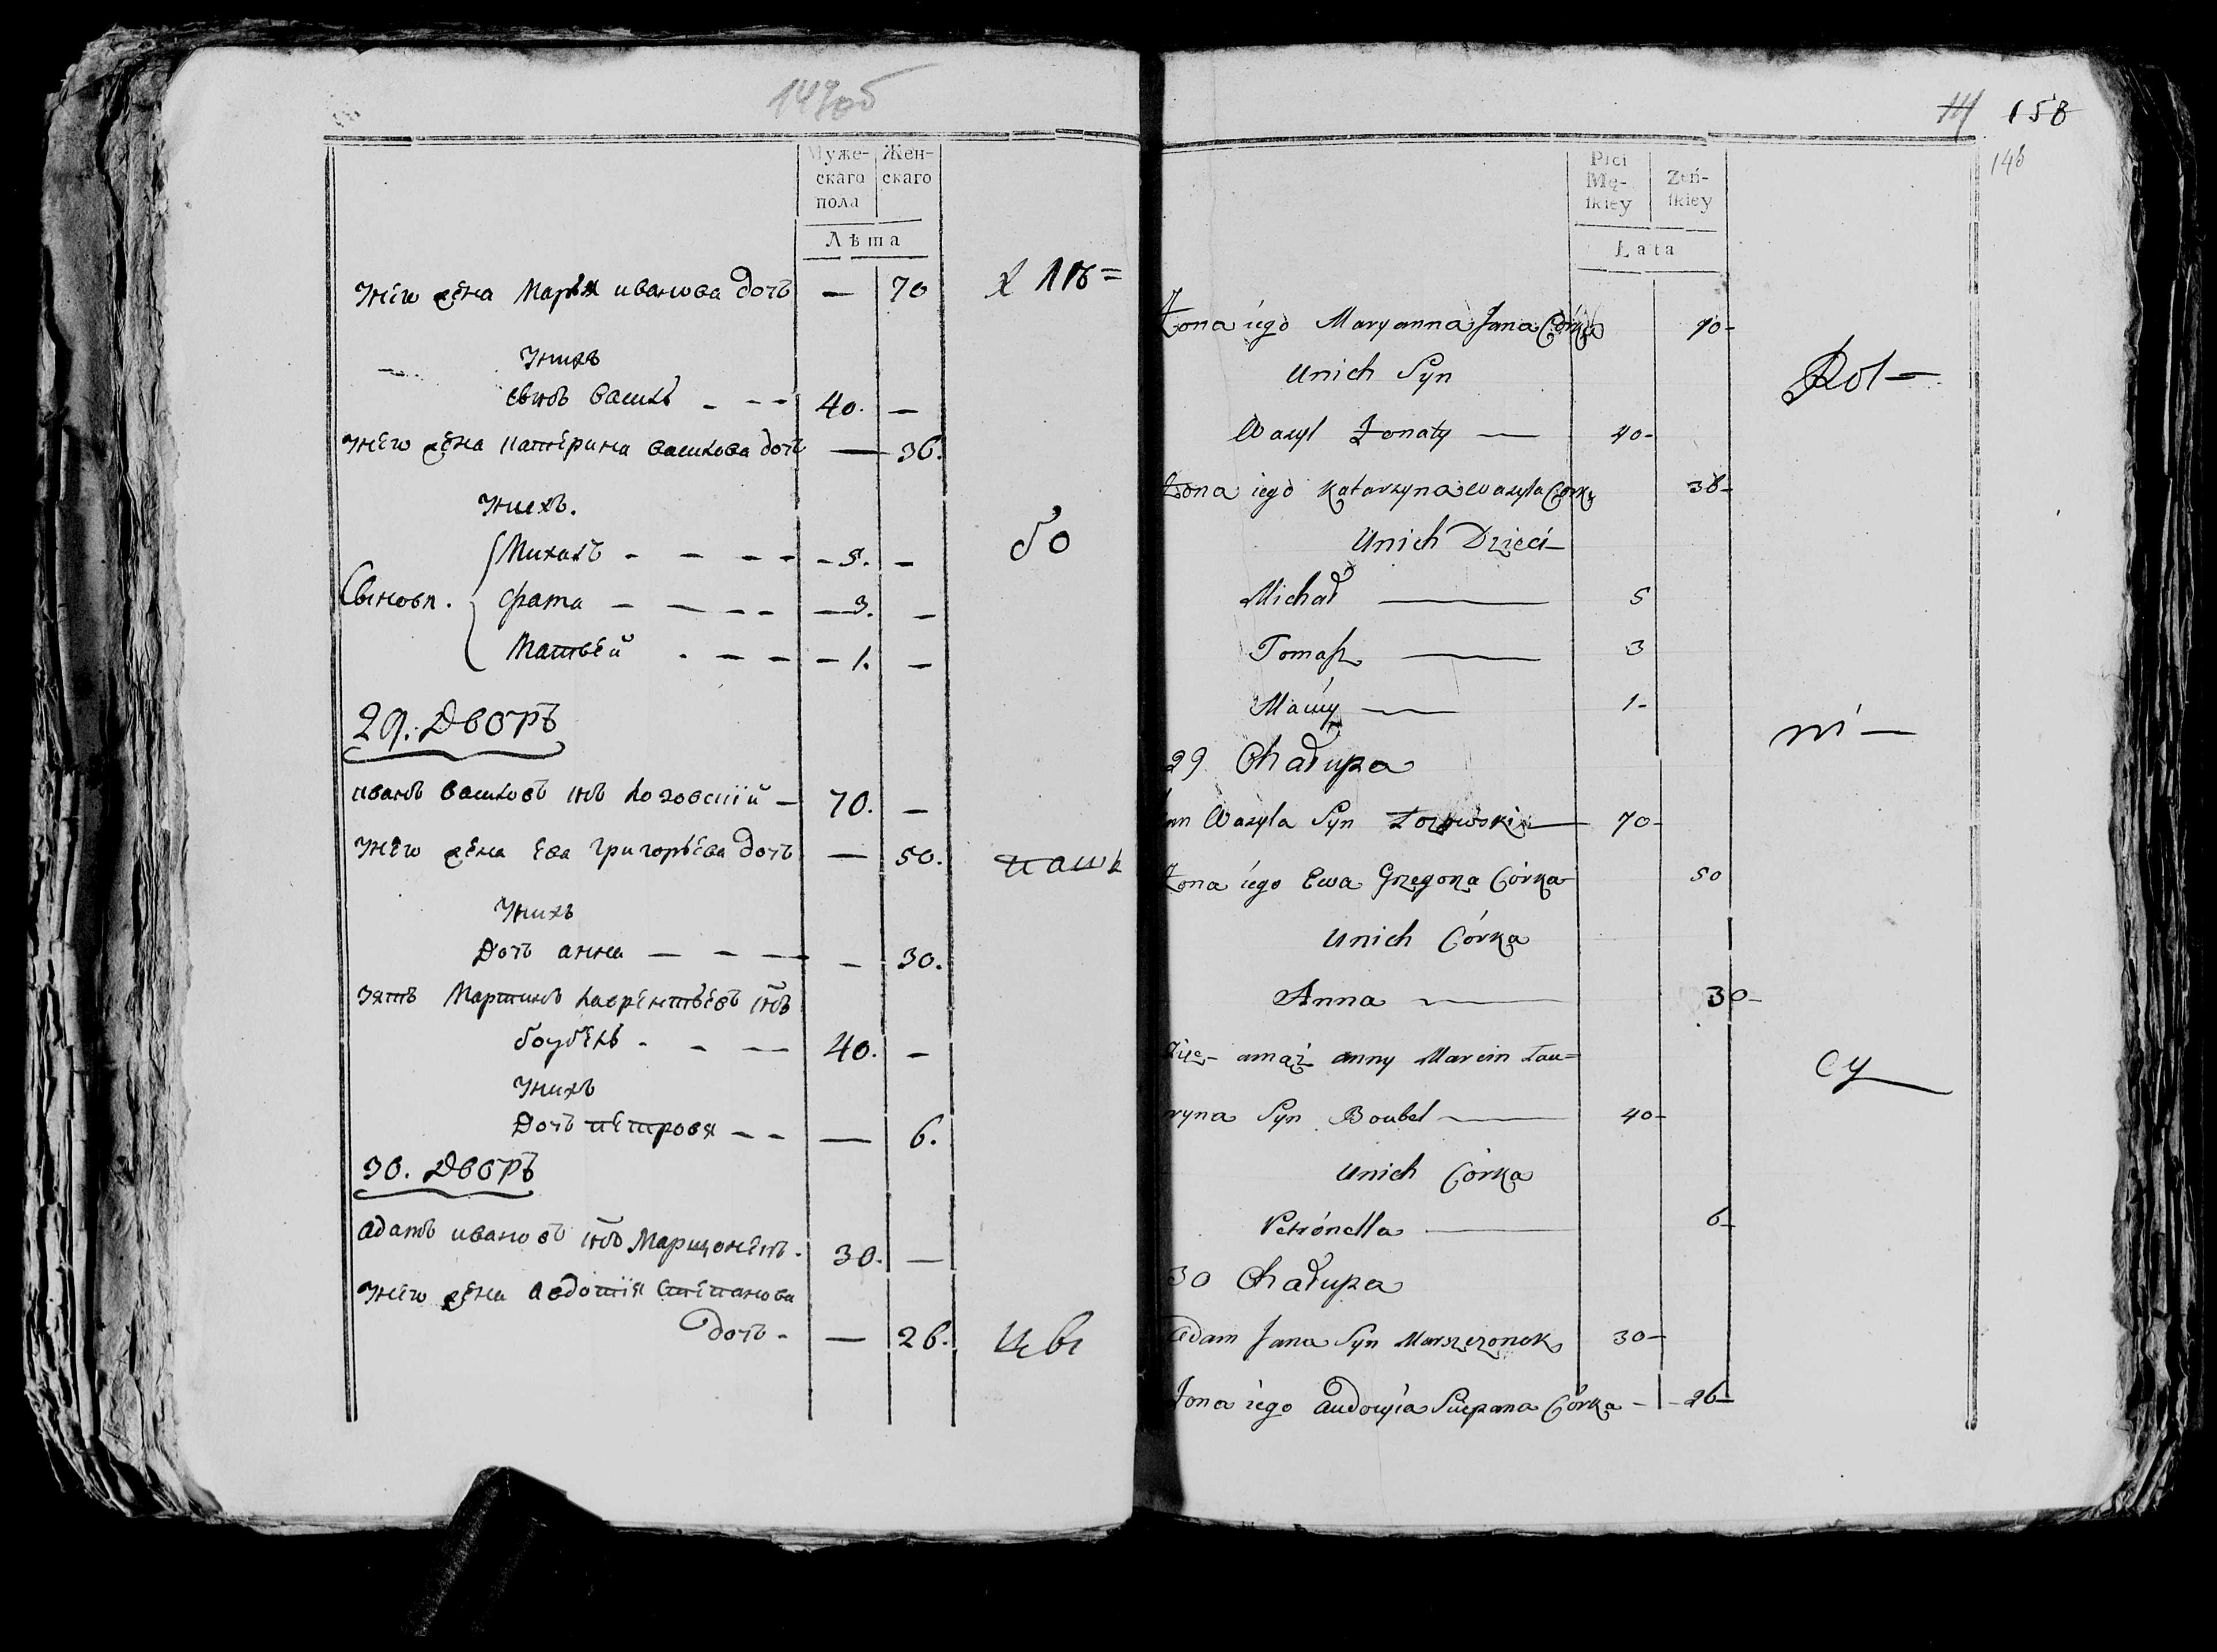 149об
Муже-
скаго
пола
Жен-
скаго
Лѣта
унего жена Марья иванова дочь — 70
унихъ
сынъ василь - - - 40. —
унего жена катерина василова дочь — 36.
унихъ.
Сыновя. Михалъ - - - - - 5. -
фама - - - - - 3. -
Матвей - - - - 1. -
29. Дворъ
иванъ василовъ снъ лозовскій - 70. —
унего жена ева григорьева дочь — 50.
унихъ
Дочь анна — - — - 30.
зять Мартинъ лаврентьевъ снъ
боубель - - — 40. -
унихъ
Дочь петровя - - — 6.
30. Дворъ
адамъ ивановъ снъ Марщонекъ. 30. —
унего жена авдотія степанова
дочь - — 26.
бо
цы
158
148
Płci
Mę-
skiey
Żeń-
skiey
Lata
Żona iego Maryanna Jana Córka 70-
Unich Syn
Wasyl Żonaty — 40-
Żona iego Katarzyna Wasyla Córka 36-
Unich Dzieci-
Michał — 5
Tomasz — 3
Maciey — 1-
29 Chałupa
Jan Wasyla Syn Łozowski — 70-
Żona iego Ewa Grzegorza Córka 50
Unich Córka
Anna — 30-
amąż anny Marcin Law=
ryna Syn Boubel — 40-
Unich Córka
Petronella — 6-
30 Chałupa
Adam Jana Syn Marszczonek 30-
Żona iego Audocyia Sciepana Córka - - 26-
Rol-
ni-
cy